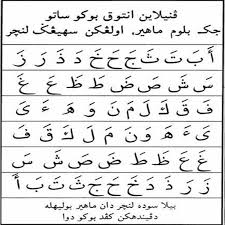 ڤنيلاين انتوق بوكو ساتو
جک بلوم ماهير، اولڠکن سهيڠݢ لنچر
أَ بَ تَ ثَ جَ حَ خَ دَ ذَ رَ زَ
سَ شَ صَ ضَ طَ ظَ عَ غَ
فَ قَ كَ لَ مَ نَ وَ هَ ءَ يَ
يَ ءَ هَ وَ نَ مَ لَ كَ قَ فَ
غَ عَ ظَ طَ ضَ صَ شَ سَ
زَ رَ ذَ دَ خَ حَ جَ ثَ تَ بَ أَ
بيلا سوده لنچر دان ماهير بوليهله
دڤيندهکن کڤد بوكو دوا